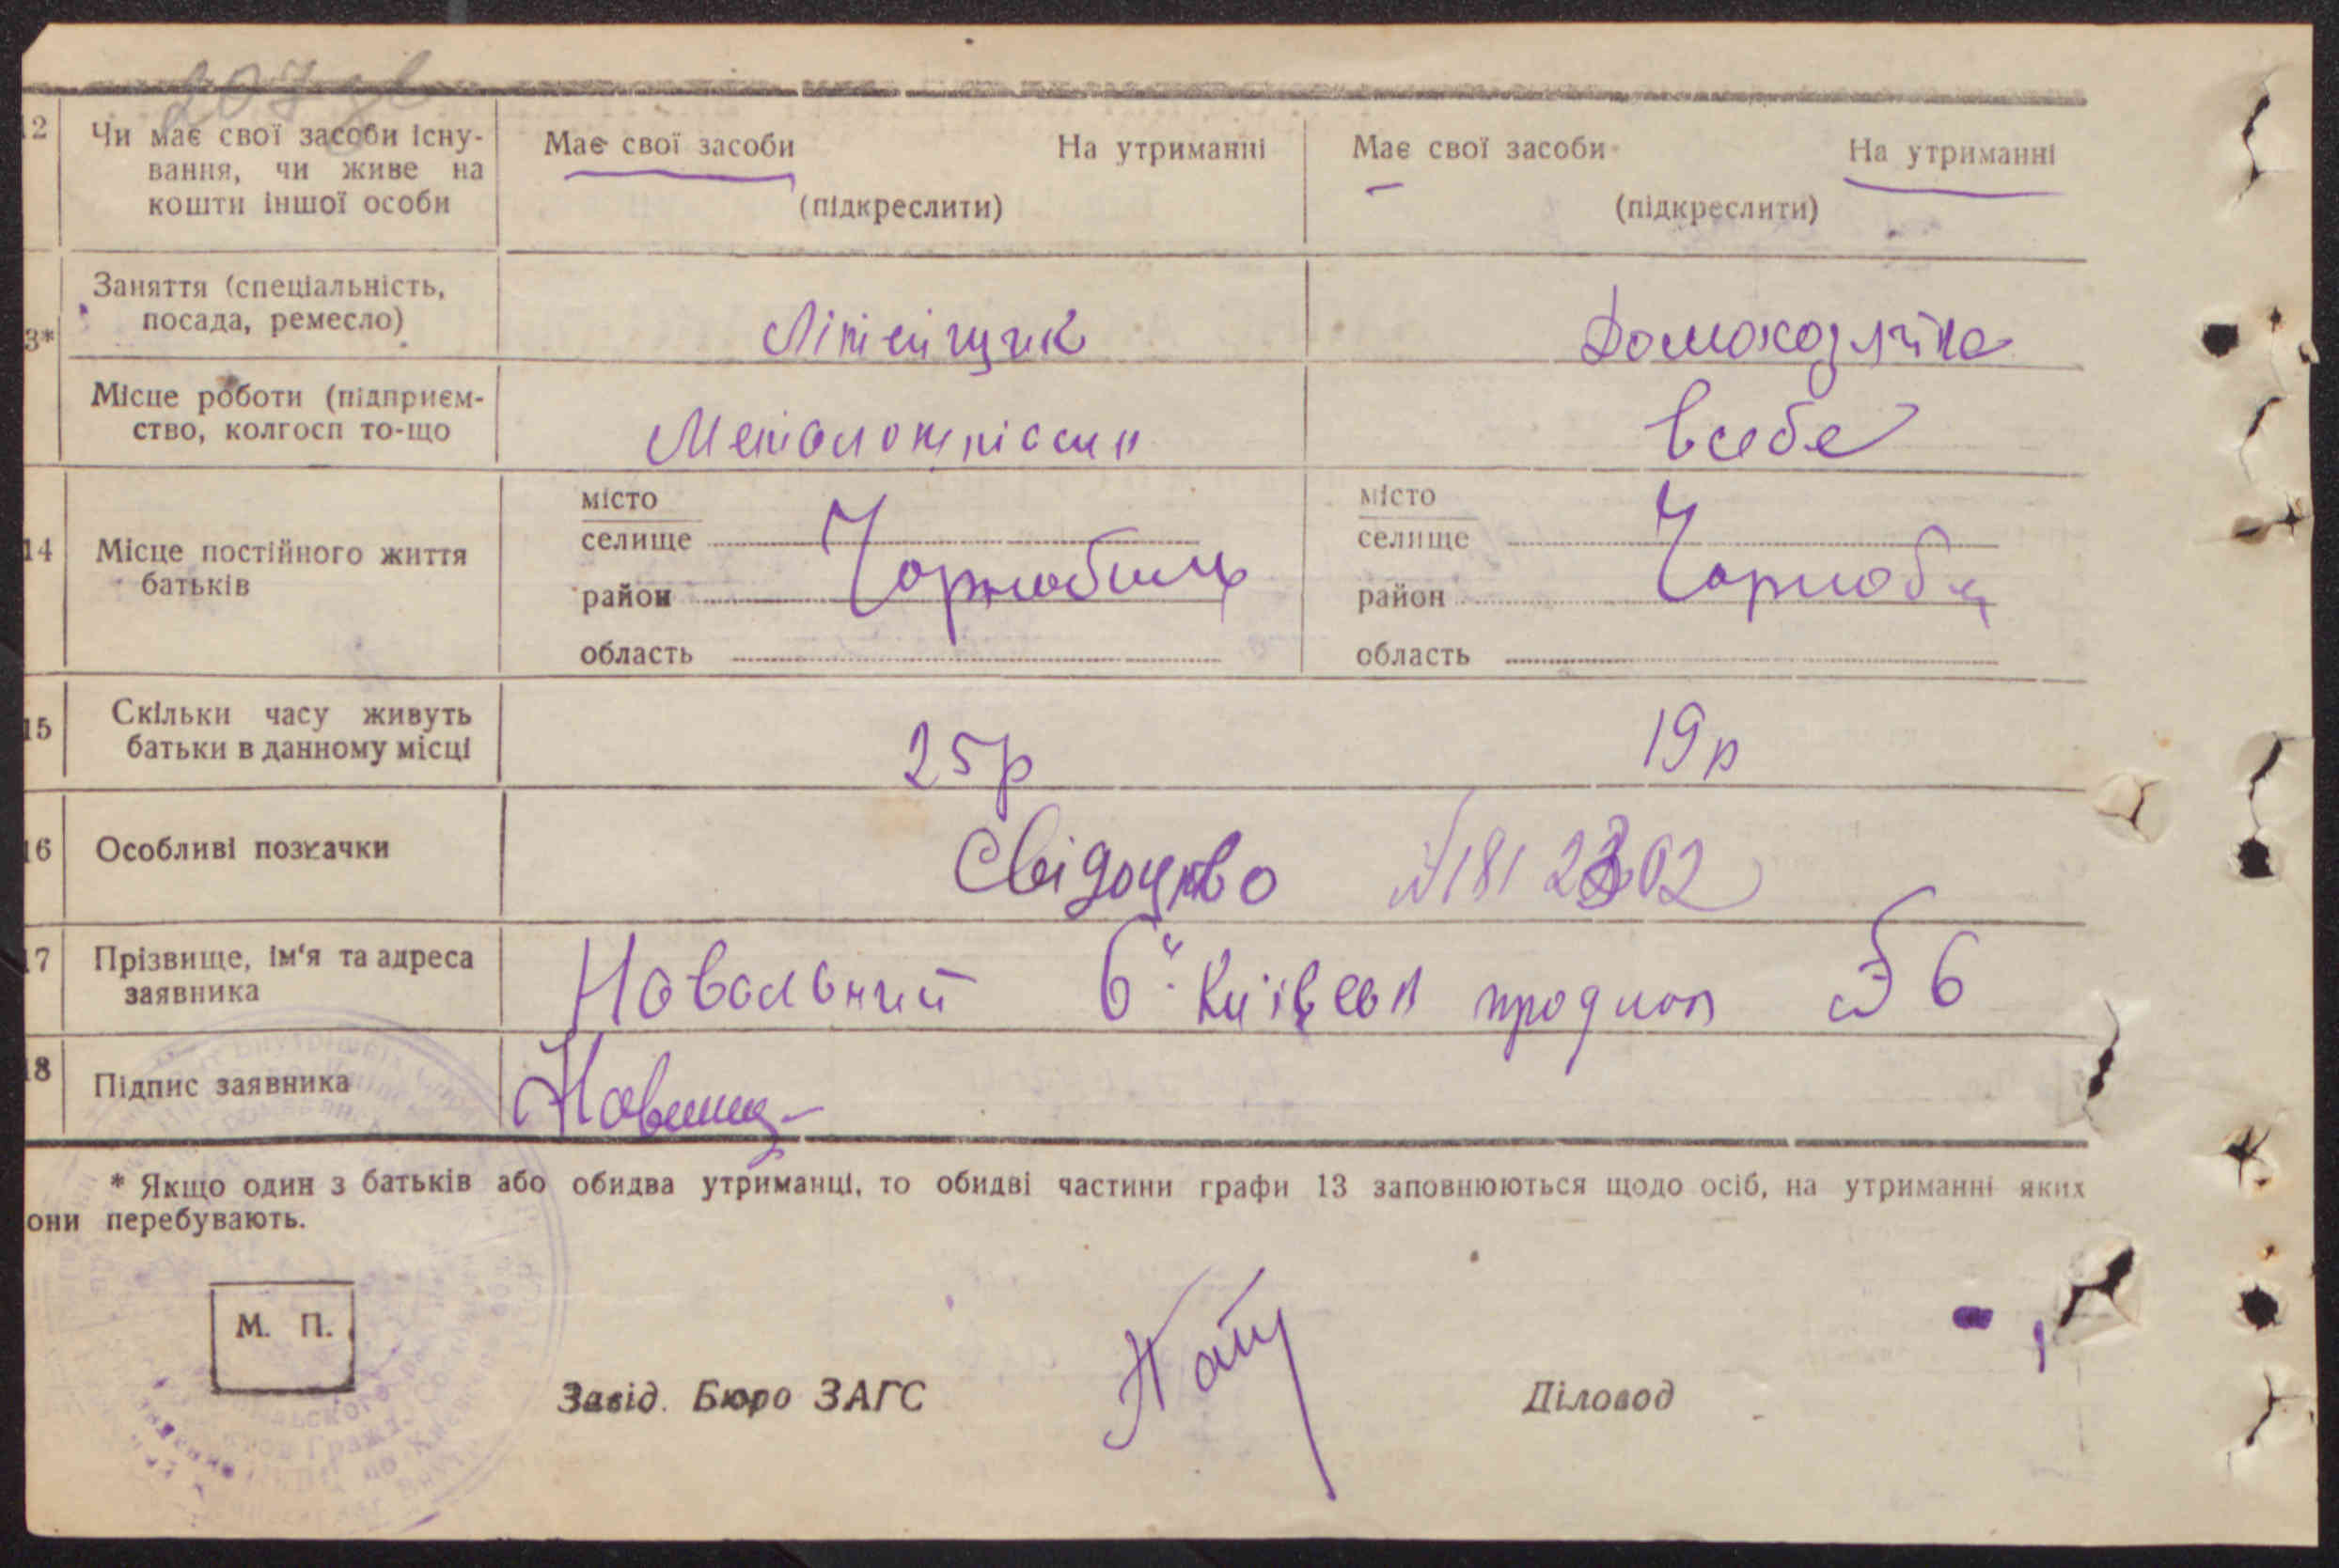 12 Чи має свої засоби існу-
вання, чи живе на
кошти іншої особи
Має свої засоби На утриманні
(підкреслити)
Має свої засоби На утриманні
(підкреслити)
13* Заняття (спеціальність,
посада, ремесло)
Літейщик
Домохозяйка
Місце роботи (підприєм-
ство, колгосп то-що
в себе
14 Місце постійного життя
батьків
місто
селище
район
область
Чорнобиль
місто
селище
район
область
Чорноб
15 Скільки часу живуть
батьки в данному місці
25р
19р
16 Особливі позначки
Свідоцтво
17 Прізвище, ім'я та адреса
заявника
Навальний 6й Київськ № 6
18 Підпис заявника
* Якщо один з батьків або обидва утриманці, то обидві частини графи 13 заповнюються щодо осіб, на утриманні яких
они перебувають.
М. П.
Завід. Бюро ЗАГС
Діловод